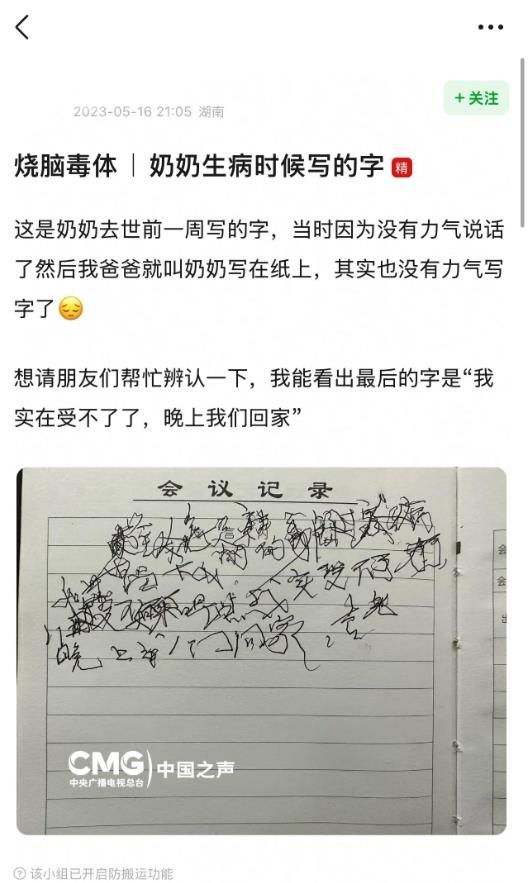 2023-05-16 21:05 湖南
+关注
烧脑毒体｜奶奶生病时候写的字 精
这是奶奶去世前一周写的字，当时因为没有力气说话
了然后我爸爸就叫奶奶写在纸上，其实也没有力气写
字了😔
想请朋友们帮忙辨认一下，我能看出最后的字是“我
实在受不了了，晚上我们回家”
会议记录
晚上 门回家
CMG 中国之声
中央广播电视总台
会
会
出
该小组已开启防搬运功能